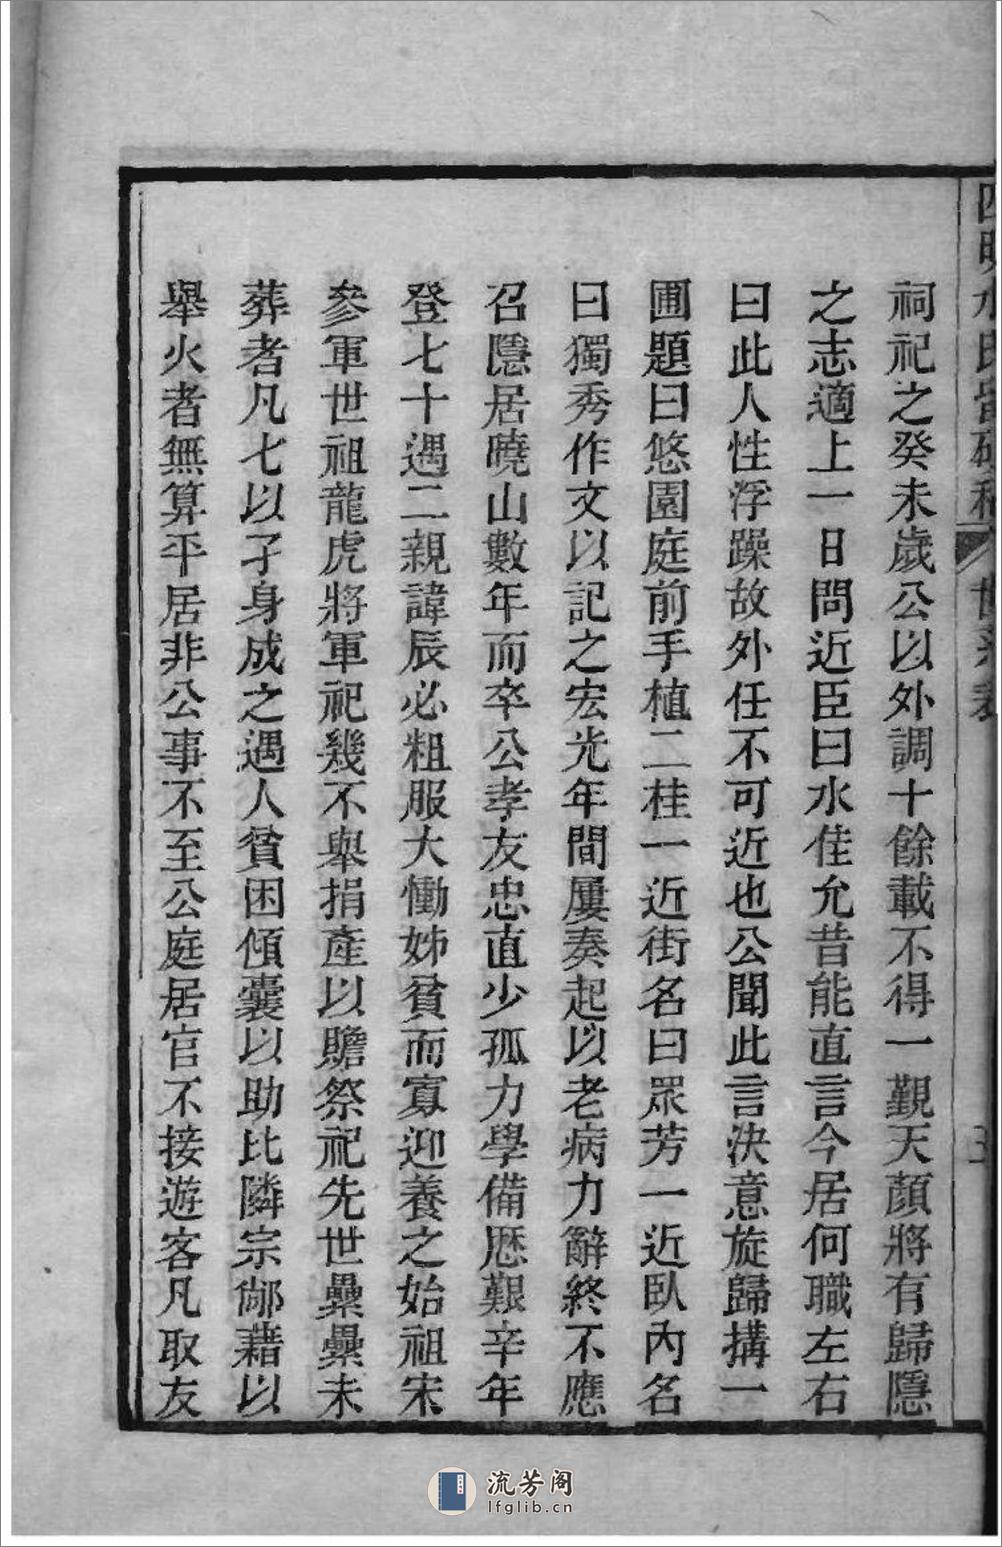 祠祀之癸未歲公以外調十餘載不得一觐天顏將有歸隱
之志適上一日問近臣曰水佳允昔能直言今居何職左右
曰此人性浮躁故外任不可近也公聞此言決意旋歸搆一
圃題曰悠園庭前手植二桂一近街名曰眾芳一近臥內名
曰獨秀作文以記之宏光年間屢奏起以老病力辭終不應
召隱居曉山數年而卒公孝友忠直少孤力學備歷艱辛年
登七十遇二親諱辰必粗服大慟姊貧而寡迎養之始祖宋
參軍世祖龍虎將軍祀幾不舉捐產以贍祭祀先世纍纍未
葬者凡七以孑身成之遇人貧困傾囊以助比隣宗鄰藉以
舉火者無算平居非公事不至公庭居官不接遊客凡取友
流芳阁
lfglib.cn